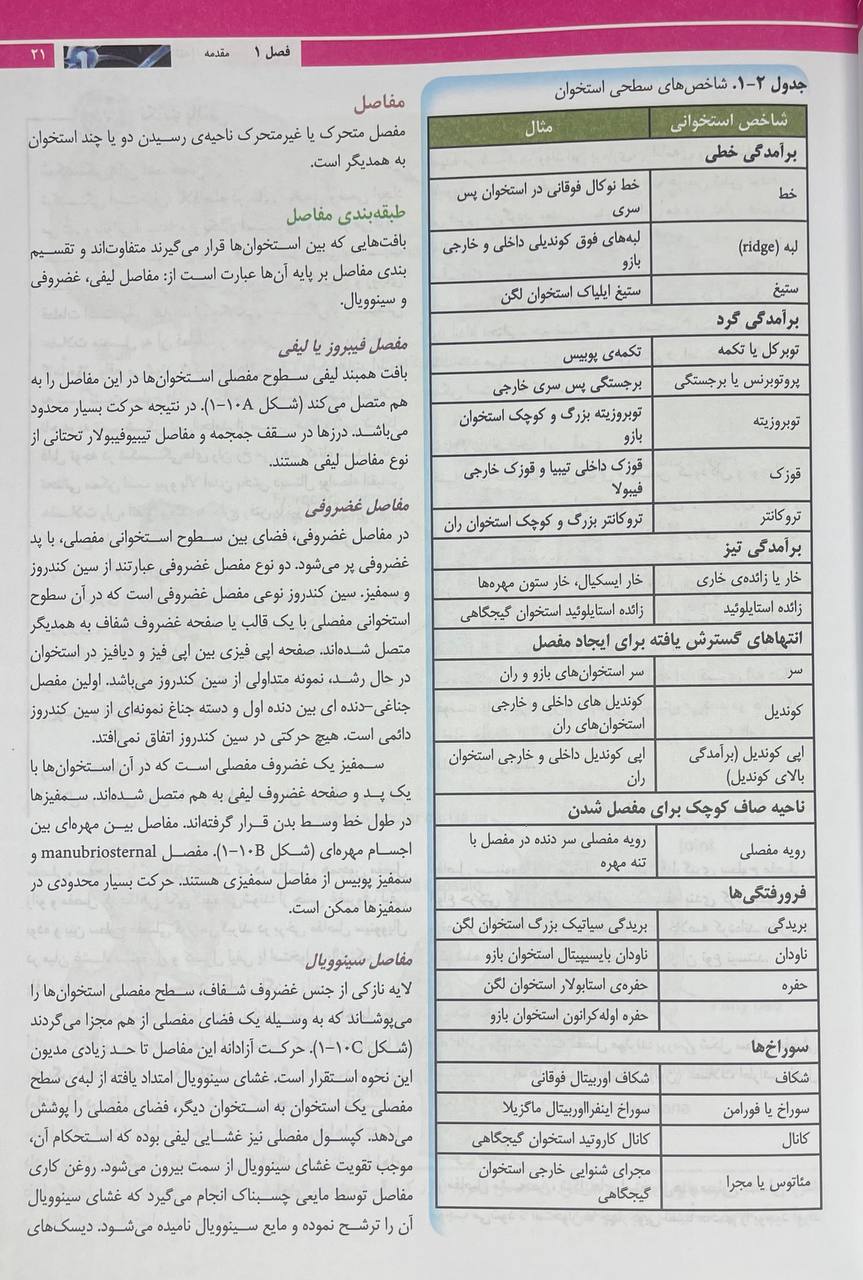 فصل ۱ مقدمه ۲۱
جدول ۲-۱. شاخص‌های سطحی استخوان
شاخص استخوانی مثال
برآمدگی خطی
خط خط نوکال فوقانی در استخوان پس
سری
لبه (ridge) لبه‌های فوق کوندیلی داخلی و خارجی
بازو
ستیغ ستیغ ایلیاک استخوان لگن
برآمدگی گرد
توبرکل یا تکمه تکمه‌ی پوبیس
پروتوبرنس یا برجستگی برجستگی پس سری خارجی
توبروزیته توبروزیته بزرگ و کوچک استخوان
بازو
قوزک قوزک داخلی تیبیا و قوزک خارجی
فیبولا
تروکانتر تروکانتر بزرگ و کوچک استخوان ران
برآمدگی تیز
خار یا زائده‌ی خاری خار ایسکیال، خار ستون مهره‌ها
زائده استایلوئید زائده استایلوئید استخوان گیجگاهی
انتهاهای گسترش یافته برای ایجاد مفصل
سر سر استخوان‌های بازو و ران
کوندیل کوندیل های داخلی و خارجی
استخوان‌های ران
اپی کوندیل (برآمدگی اپی کوندیل داخلی و خارجی استخوان
بالای کوندیل) ران
ناحیه صاف کوچک برای مفصل شدن
رویه مفصلی رویه مفصلی سر دنده در مفصل با
تنه مهره
فرورفتگی‌ها
بریدگی بریدگی سیاتیک بزرگ استخوان لگن
ناودان ناودان بایسیپیتال استخوان بازو
حفره حفره‌ی استابولار استخوان لگن
حفره اوله‌کرانون استخوان بازو
سوراخ‌ها
شکاف شکاف اوربیتال فوقانی
سوراخ یا فورامن سوراخ اینفرااوربیتال ماگزیلا
کانال کانال کاروتید استخوان گیجگاهی
مئاتوس یا مجرا مجرای شنوایی خارجی استخوان
گیجگاهی
مفاصل
مفصل متحرک یا غیرمتحرک ناحیه‌ی رسیدن دو یا چند استخوان
به همدیگر است.
طبقه‌بندی مفاصل
بافت‌هایی که بین استخوان‌ها قرار می‌گیرند متفاوت‌اند و تقسیم
بندی مفاصل بر پایه آن‌ها عبارت است از: مفاصل لیفی، غضروفی
و سینوویال.
مفصل فیبروز یا لیفی
بافت همبند لیفی سطوح مفصلی استخوان‌ها در این مفاصل را به
هم متصل می‌کند (شکل ۱۰A-۱). در نتیجه حرکت بسیار محدود
می‌باشد. درزها در سقف جمجمه و مفاصل تیبیوفیبولار تحتانی از
نوع مفاصل لیفی هستند.
مفاصل غضروفی
در مفاصل غضروفی، فضای بین سطوح استخوانی مفصلی، با پد
غضروفی پر می‌شود. دو نوع مفصل غضروفی عبارتند از سین کندروز
و سمفیز. سین کندروز نوعی مفصل غضروفی است که در آن سطوح
استخوانی مفصلی با یک قالب یا صفحه غضروف شفاف به همدیگر
متصل شده‌اند. صفحه اپی فیزی بین اپی فیز و دیافیز در استخوان
در حال رشد، نمونه متداولی از سین کندروز می‌باشد. اولین مفصل
جناغی-دنده ای بین دنده اول و دسته جناغ نمونه‌ای از سین کندروز
دائمی است. هیچ حرکتی در سین کندروز اتفاق نمی‌افتد.
سمفیز یک غضروف مفصلی است که در آن استخوان‌ها با
یک پد و صفحه غضروف لیفی به هم متصل شده‌اند. سمفیزها
در طول خط وسط بدن قرار گرفته‌اند. مفاصل بین مهره‌ای بین
اجسام مهره‌ای (شکل ۱۰B-۱). مفصل manubriosternal و
سمفیز پوبیس از مفاصل سمفیزی هستند. حرکت بسیار محدودی در
سمفیزها ممکن است.
مفاصل سینوویال
لایه نازکی از جنس غضروف شفاف، سطح مفصلی استخوان‌ها را
می‌پوشاند که به وسیله یک فضای مفصلی از هم مجزا می‌گردند
(شکل ۱۰C-۱). حرکت آزادانه این مفاصل تا حد زیادی مدیون
این نحوه استقرار است. غشای سینوویال امتداد یافته از لبه‌ی سطح
مفصلی یک استخوان به استخوان دیگر، فضای مفصلی را پوشش
می‌دهد. کپسول مفصلی نیز غشایی لیفی بوده که استحکام آن،
موجب تقویت غشای سینوویال از سمت بیرون می‌شود. روغن کاری
مفاصل توسط مایعی چسبناک انجام می‌گیرد که غشای سینوویال
آن را ترشح نموده و مایع سینوویال نامیده می‌شود. دیسک‌های